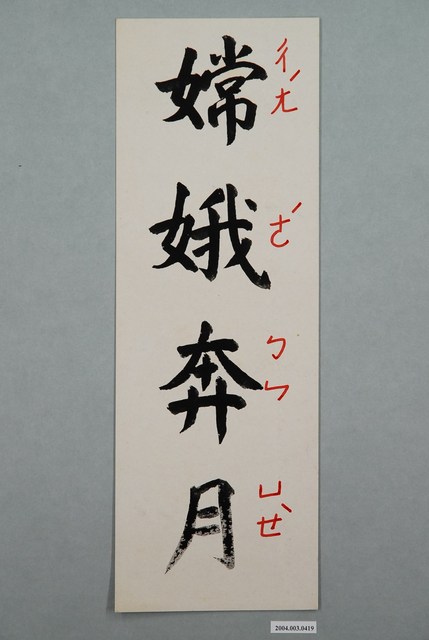 嫦娥奔月
ㄔㄤˊ
ㄜˊ
ㄅㄣ
ㄩㄝˋ
2004.003.0419